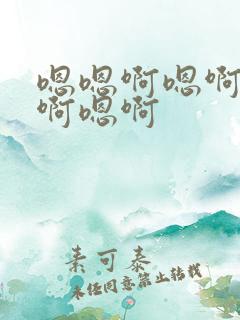 嗯嗯啊嗯啊
啊嗯啊
素可泰
未经同意禁止转载